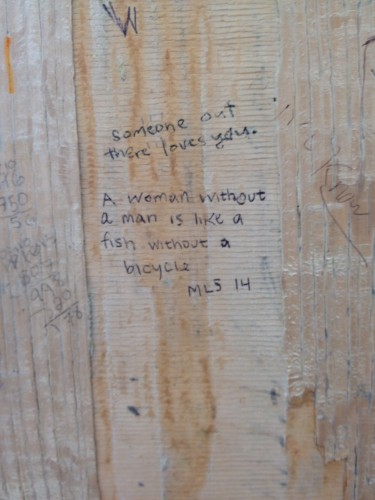 W
someone out
there loves you.
A woman without
a man is like a
fish without a
bicycle
MLS 14